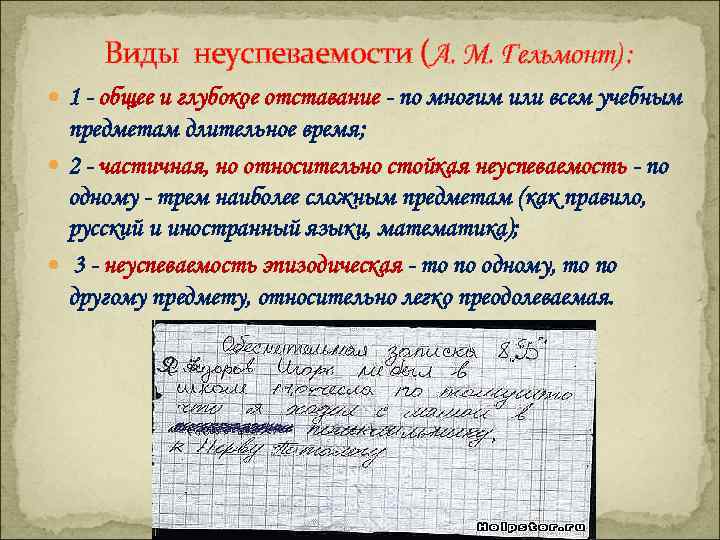 Виды неуспеваемости (А. М. Гельмонт):
1 - общее и глубокое отставание - по многим или всем учебным
предметам длительное время;
2 - частичная, но относительно стойкая неуспеваемость - по
одному - трем наиболее сложным предметам (как правило,
русский и иностранный языки, математика);
3 - неуспеваемость эпизодическая - то по одному, то по
другому предмету, относительно легко преодолеваемая.
записка 8 "Б"
Игорь не был в
школе по
что я ходил с мамой в
к Нерву Патологу
Helpster.ru